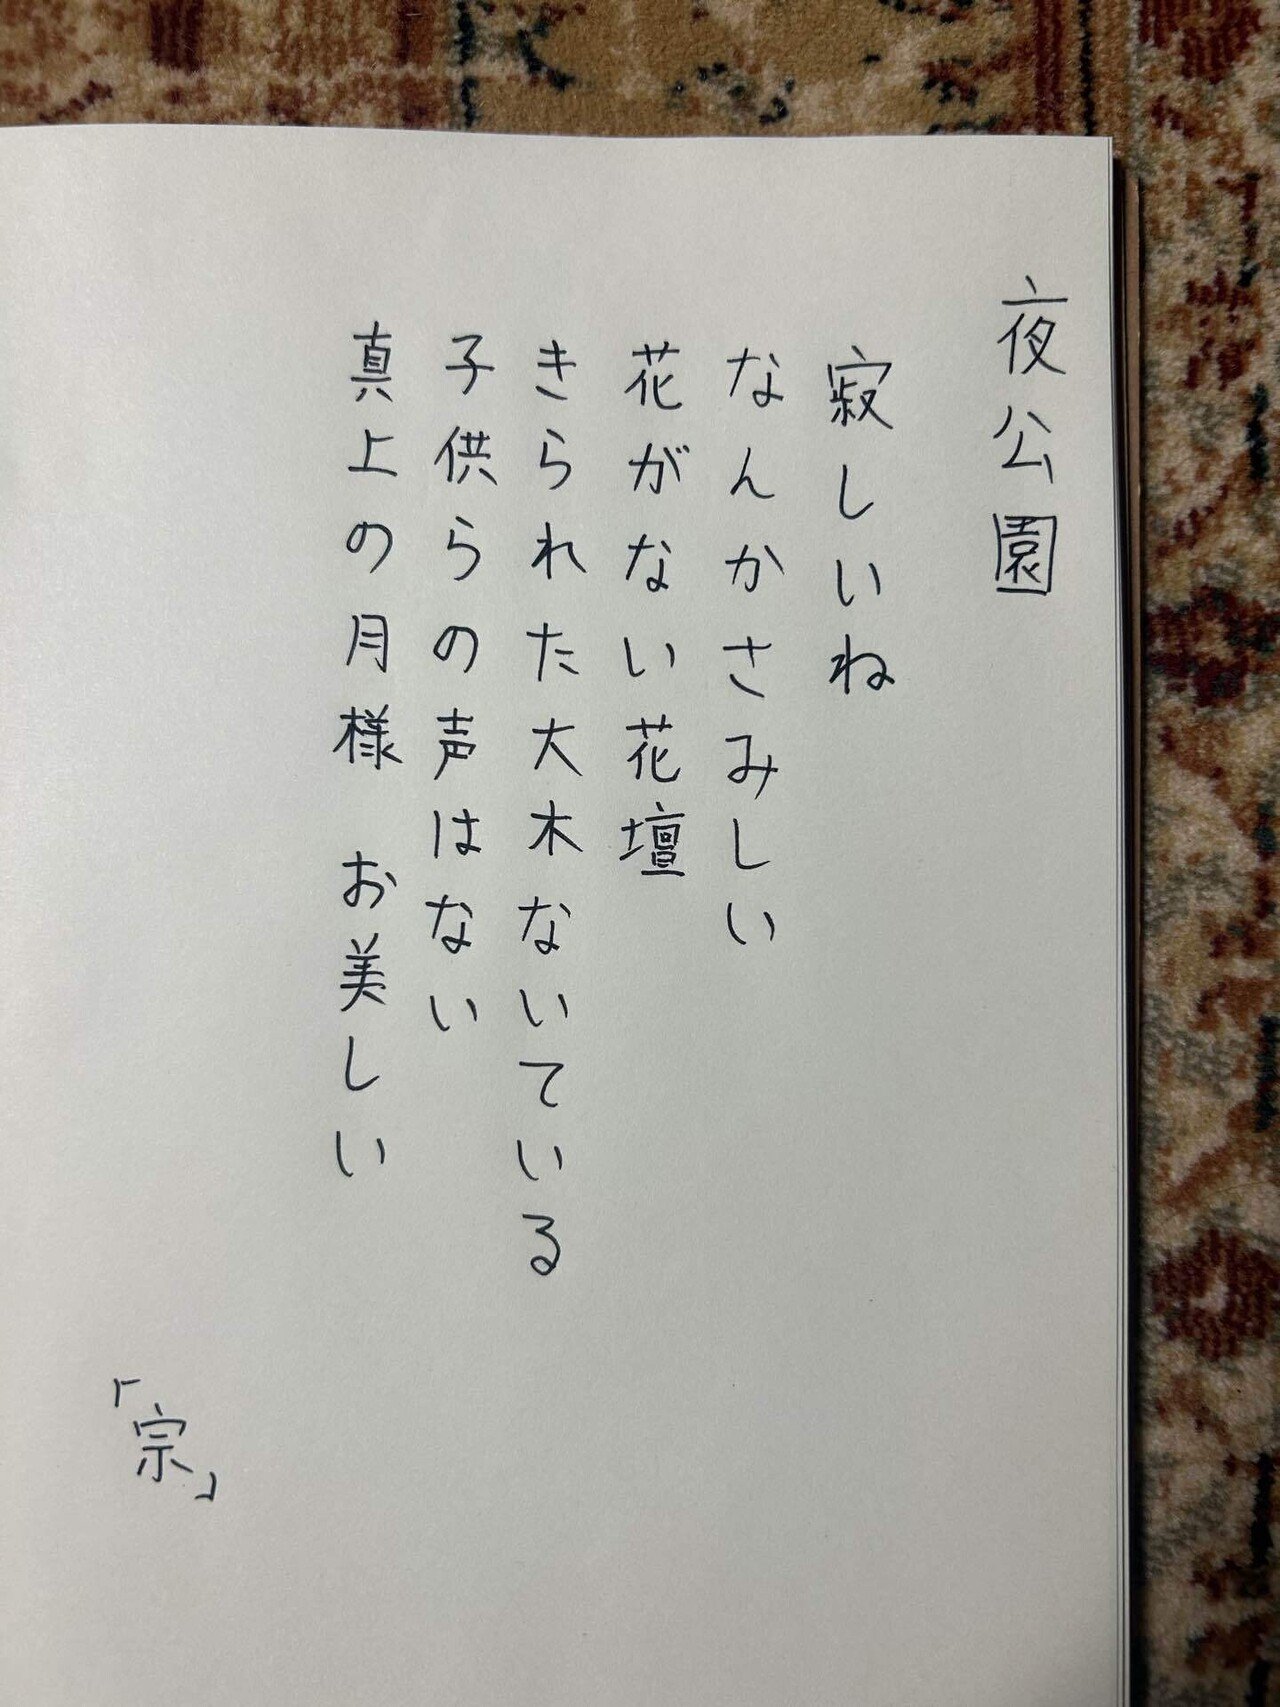 夜公園
寂しいね
なんかさみしい
花がない花壇
きられた大木ないている
子供らの声はない
真上の月様 お美しい
「宗」